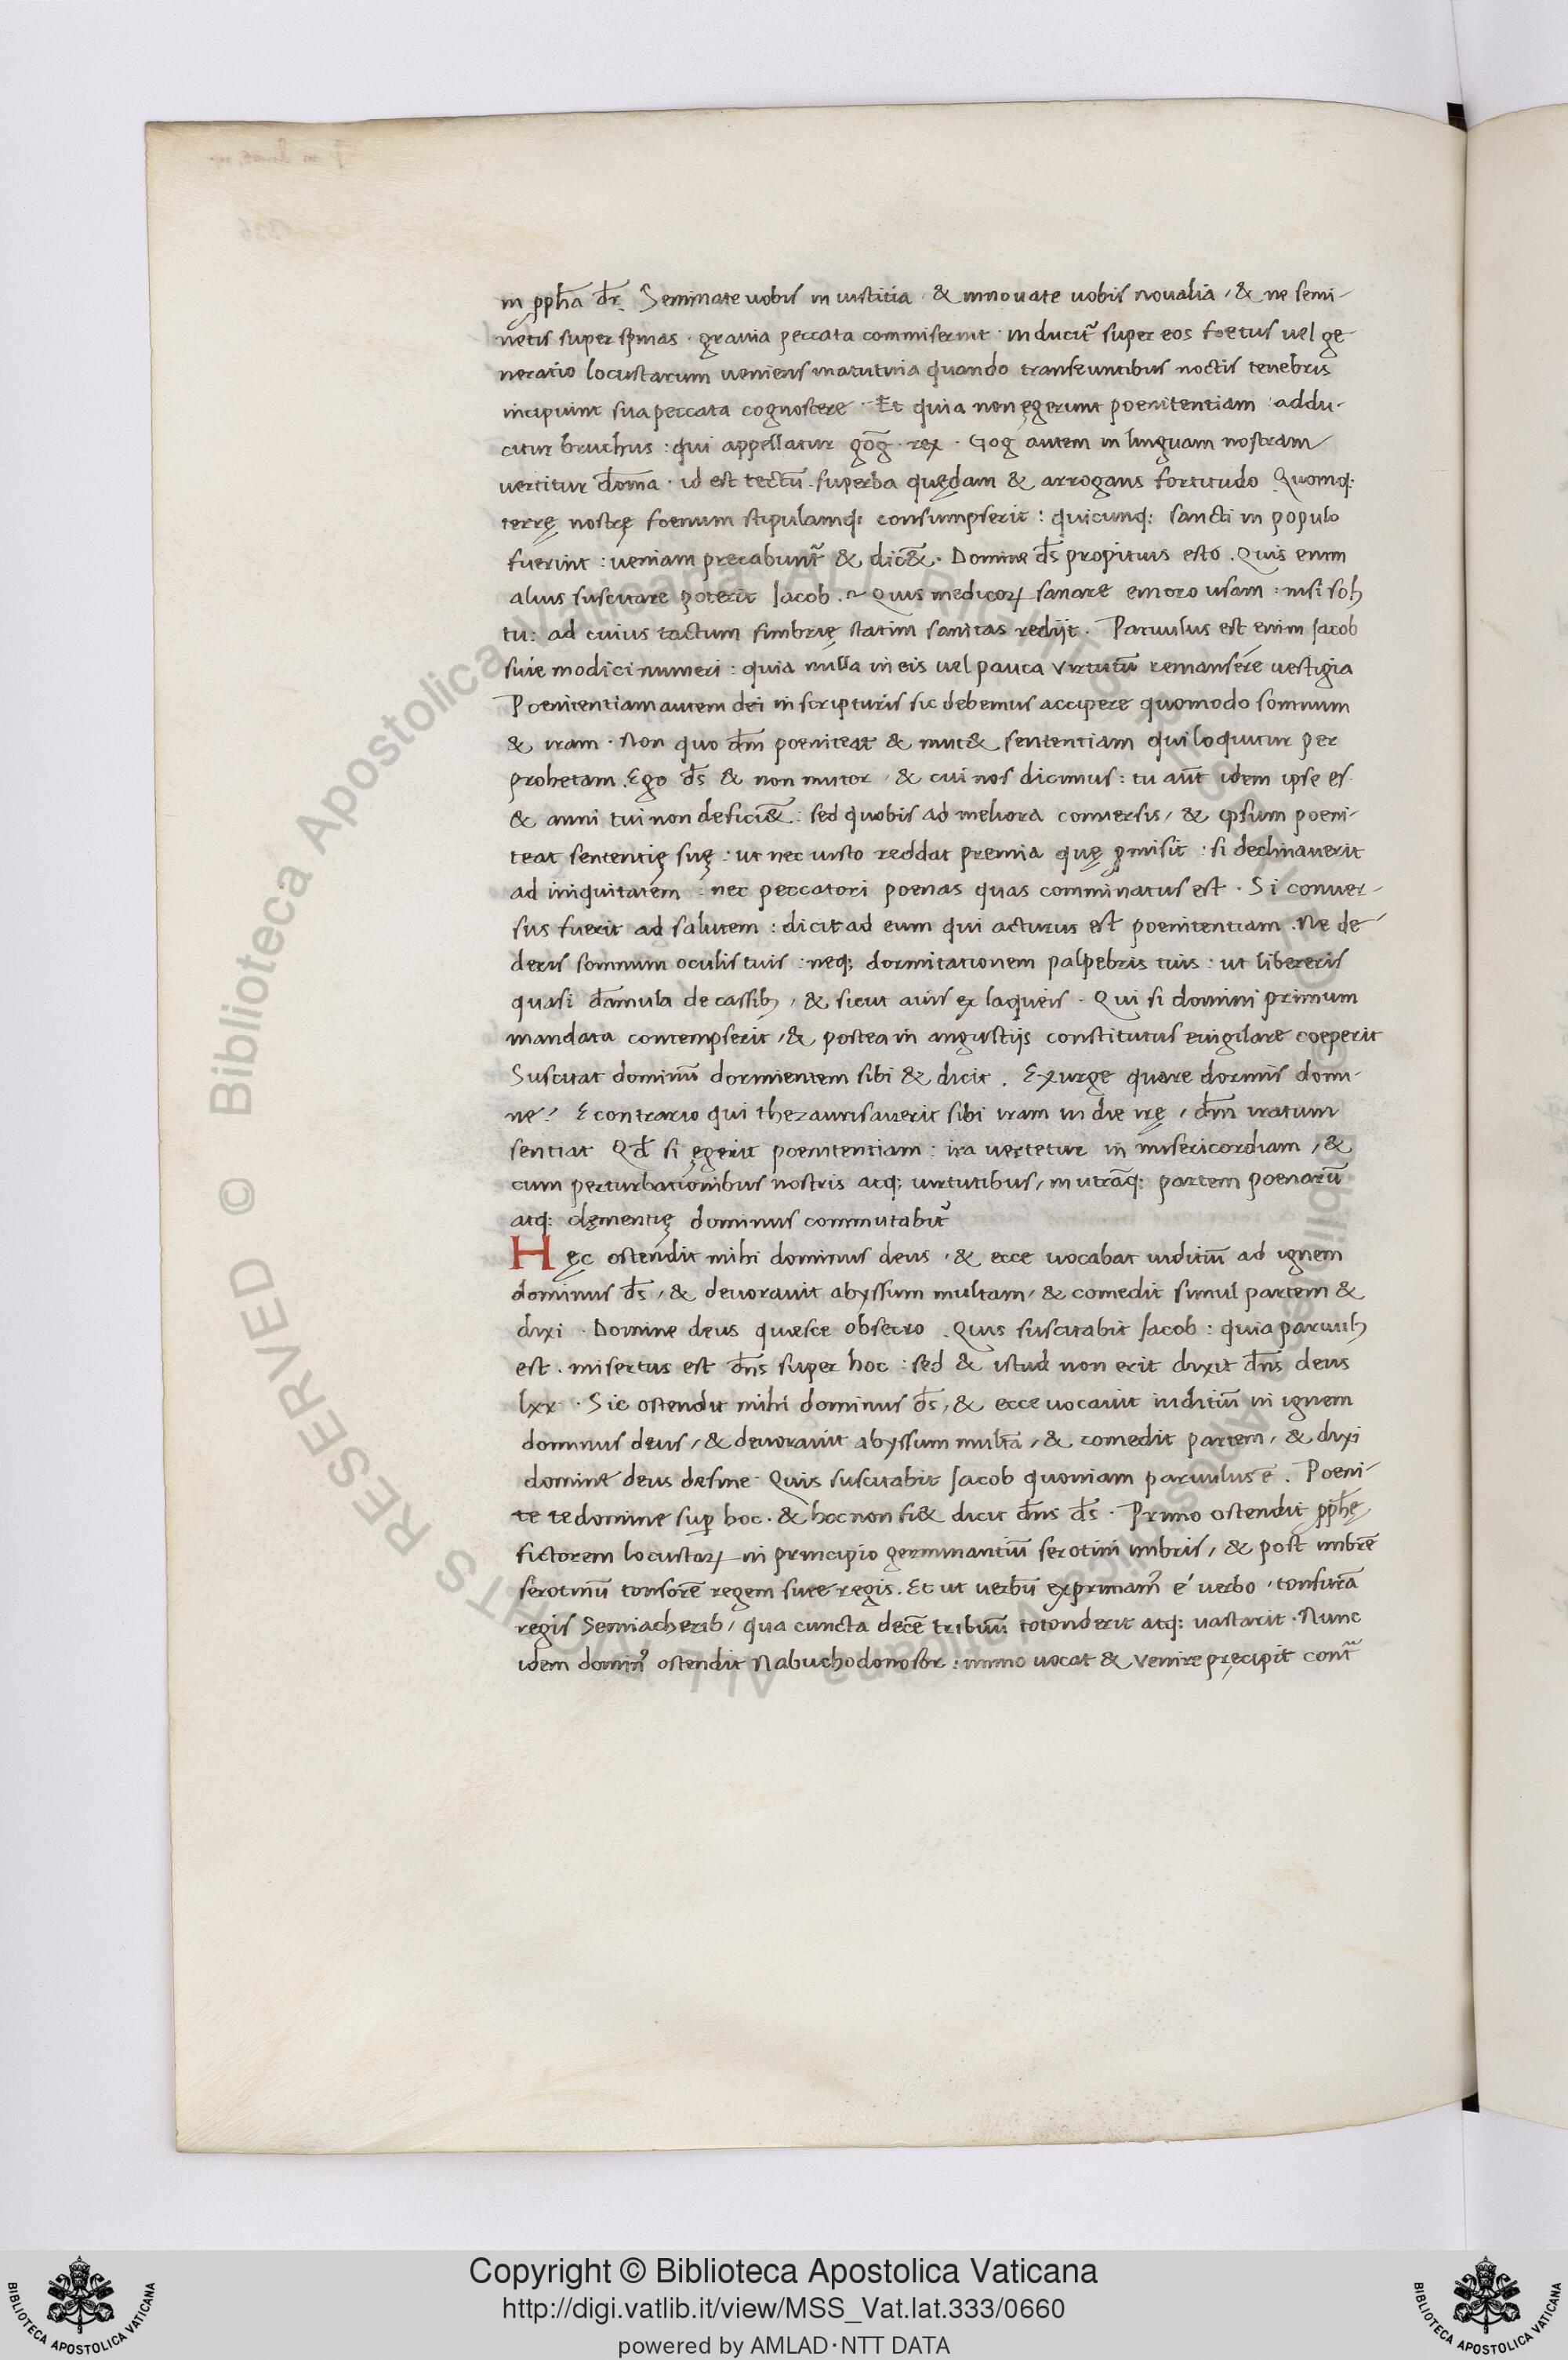 in ꝓph̄a dr̄. Seminate uobis in iustitia · & innouate uobis noualia / & ne semi-
netis super spinas · grauia peccata commiserint · inducit᷑ super eos foetus uel ge
neratio locustarum ueniens matutina quando transeuntibus noctis tenebris
incipiunt sua peccata cognoscere · Et quia non ęgerunt poenitentiam : addu-
citur bruchus : qui appellatur gōg · rex · Gog autem in linguam nostram
uertitur dōma · id est tectū . superba quędam & arrogans fortitudo Quomq:
terrę nostrę foenum stipulamq: consumpserit : quicunq: sancti in populo
fuerint : ueniam precabunt᷑ & dic&̄ . Domine ds̄ propitius esto . Quis enim
alius suscitare poterit Jacob . Quis medicoꝝ sanare emorousam : nisi solꝰ
tu : ad cuius tactum fimbrię statim sanitas redijt . Paruulus est enim Jacob
siue modici numeri : quia nulla in eis uel pauca virtutū remansére uestigia
Poenitentiam autem dei in scripturis sic debemus accipere quomodo somnum
& iram · Non quo dm̄ poeniteat & mut& sententiam qui loquitur per
prohetam . Ego ds̄ & non mutor / & cui nos dicimus : tu aūt idem ipse es ·
& anni tui non defici&̄ : sed quobis ad meliora conuersis / & ip̄sum poeni-
teat sententię suę : ut nec iusto reddat premia quę ꝓmisit : si declinauerit
ad iniquitatem : nec peccatori poenas quas comminatus est . Si conuer-
sus fuerit ad salutem : dicit ad eum qui acturus est poenitentiam . Ne de-
deris somnum oculis tuis : neq; dormitationem palpebris tuis : ut libereris
quasi dāmula de cassibꝰ / & sicut auis ex laqueis . Qui si domini primum
mandata contempserit / & postea in angustijs constitutus euigilare coeperit
Suscitat dominū dormientem sibi & dicit . Exurge quare dormis domi-
ne ? E contrario qui thezaurisauerit sibi iram in die irę / dm̄ iratum
sentiat Qd̄ si ęgerit poenitentiam : ira uertetur in misericordiam / &
cum perturbationibus nostris atq; uirtutibus / in utrāq: partem poenarū
atq: clęmentię dominus commutabit᷑
Hęc ostendit mihi dominus deus / & ecce uocabat iuditiū ad ignem
dominus ds̄ / & deuorauit abyssum multam / & comedit simul partem &
dixi · Domine deus quiesce obsecro . Quis suscitabit Jacob : quia paruulꝰ
est . misertus est dn̄s super hoc : sed & istud non erit dixit dn̄s deus
lxx · Sic ostendit mihi dominus ds̄ / & ecce uocauit iuditiū in ignem
dominus deus / & deuorauit abyssum multā / & comedit partem / & dixi
domine deus desine · Quis suscitabit Jacob quoniam paruulus ē . Poeni-
te te domine suꝑ hoc . & hoc non fi& dicit dn̄s ds̄ . Primo ostendit ꝓph̄ę
fictorem locustaꝝ in principio germinantiū serotini imbris / & post imbrē
serotinū tonsorē regem siue regis . Et ut uerbū exprimamꝰ é verbo / tonsurā
regis Senniacherib / qua cuncta decē tribuū totonderit atq: uastarit . Nunc
idem dominꝰ ostendit Nabuchodonosor : immo uocat & venire pręcipit cont᷑
Copyright © Biblioteca Apostolica Vaticana
http://digi.vatlib.it/view/MSS_Vat.lat.333/0660
powered by AMLAD·NTT DATA